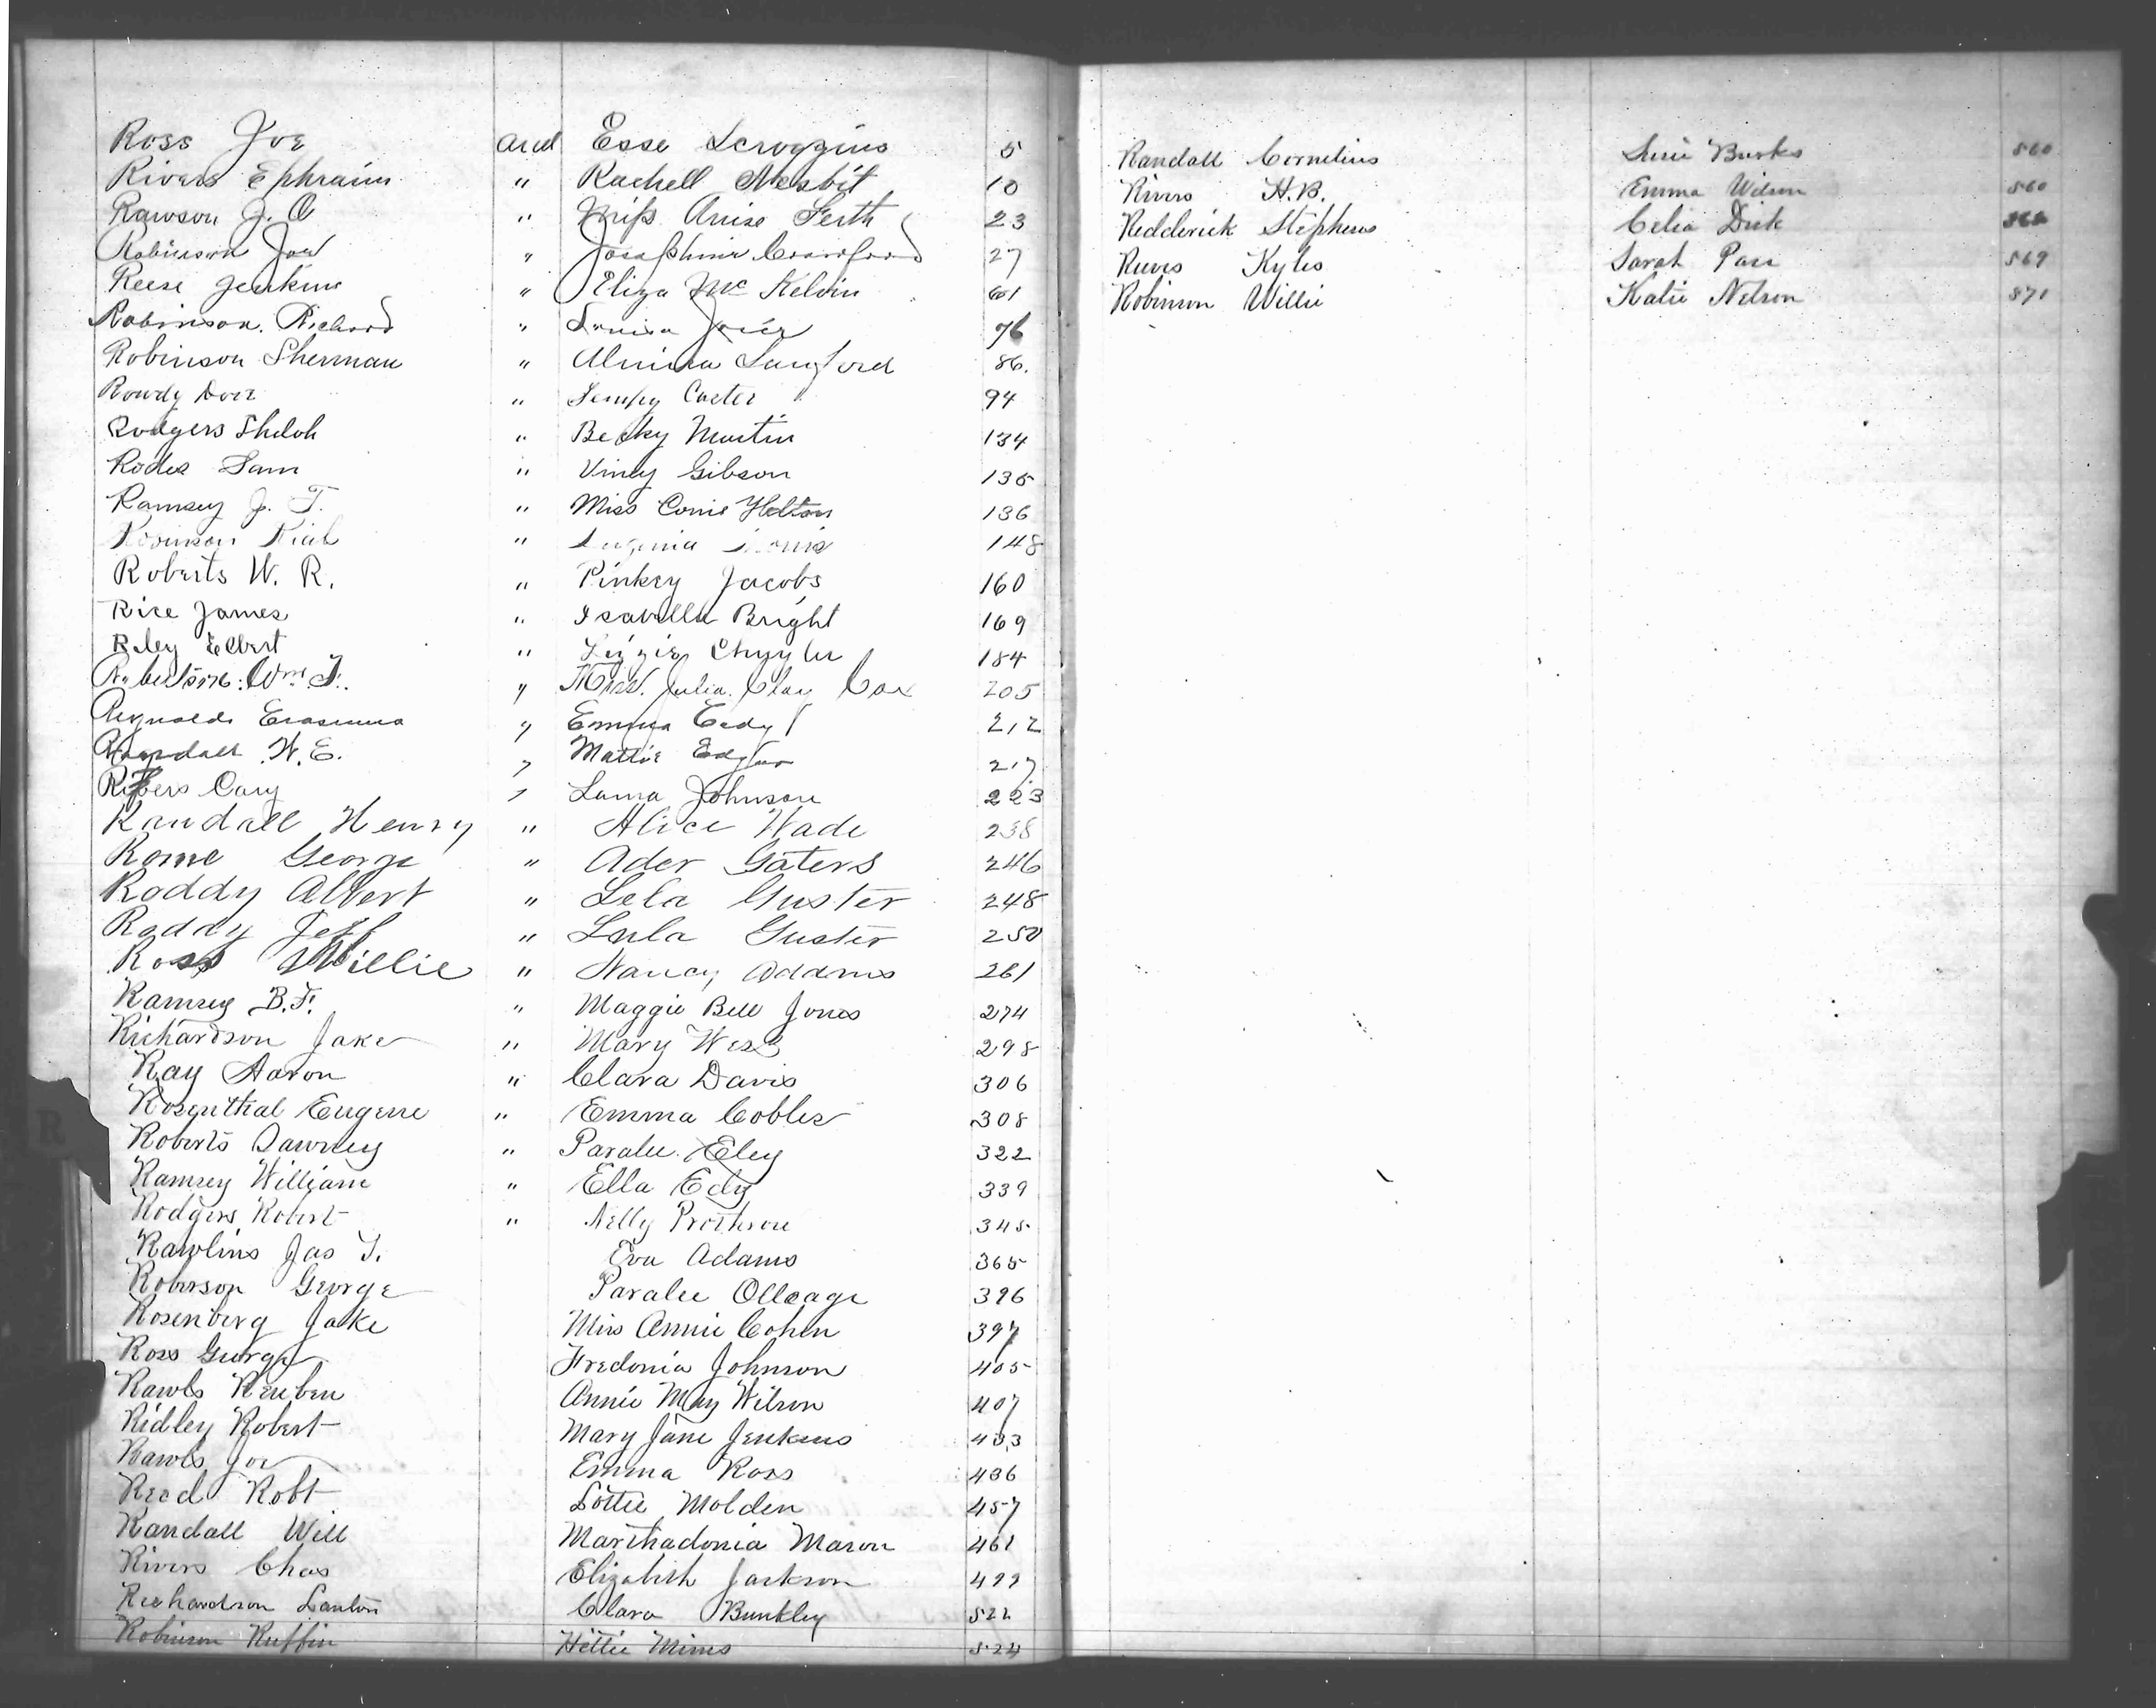 Ross Joe and Esse Scroggins 5
Rivers Ephraim " Rachell Nesbit 10
Rawson J. O " Miss Anise Ferth 23
Robinson Joe " Josephine Crawford 27
Reese Jenkins " Eliza Mc Kelvin 61
Robinson. Richard " Louisa 76
Robinson Sherman " Almira Langford 86.
Rowdy " Tempy Carter 94
Rodgers Shiloh " Becky Martin 134
Rodes Sam " Viney Gibson 135
Ramsey J. T. " Miss Conie Holton 136
Robinson " 148
Roberts W. R. " Pinkey Jacobs 160
Rice James " Isabella Bright 169
Riley Elbert " Lizzie 184
Robertson: Wm. T. " Miss. Julia. Clay Cox 205
Reynolds Erasmus " Emma Eady 212
Randall W. E. " Mattie Edgar 217
Rivers Cary " Laura Johnson 223
Randall Henry " Alice Wade 238
Rome George " Ader Gaters 246
Roddy Albert " Lela Guster 248
Roddy Jeff " Lula Guster 250
Ross Willie " Nancy Addams 261
Ramsey B. F. " Maggie Bell Jones 274
Richardson Jake " Mary West 298
Ray Aaron " Clara Davis 306
Rosenthal Eugene " Emma Cobler 308
Roberts Dawney " Paralee Eley 322
Ramsey William " Ella Edy 339
Rodgers Robert " Nelly Prothroe 345
Rawlins Jas T. Eva Adams 365
Roberson George Paralee Olleage 396
Rosenberg Jake Miss Annie Cohen 397
Ross George Fredonia Johnson 405
Rawls Reuben Annie May Wilson 407
Ridley Robert Mary Jane Jenkins 433
Rawls Joe Emma Ross 436
Read Robt Lottie Molden 457
Randall Will Marthadonia Mason 461
Rivers Chas Elizabeth Jackson 499
Richardson Lanton Clara Bunkley 522
Robinson Ruffin Hettie Mims 524
Randall Cornelius Susie Burks 560
Rivers H. B. Emma Wilson 560
Redderick Stephens Celia Dick
Reeves Kyles Sarah Pace 569
Robinson Willie Katie Nelson 571
R